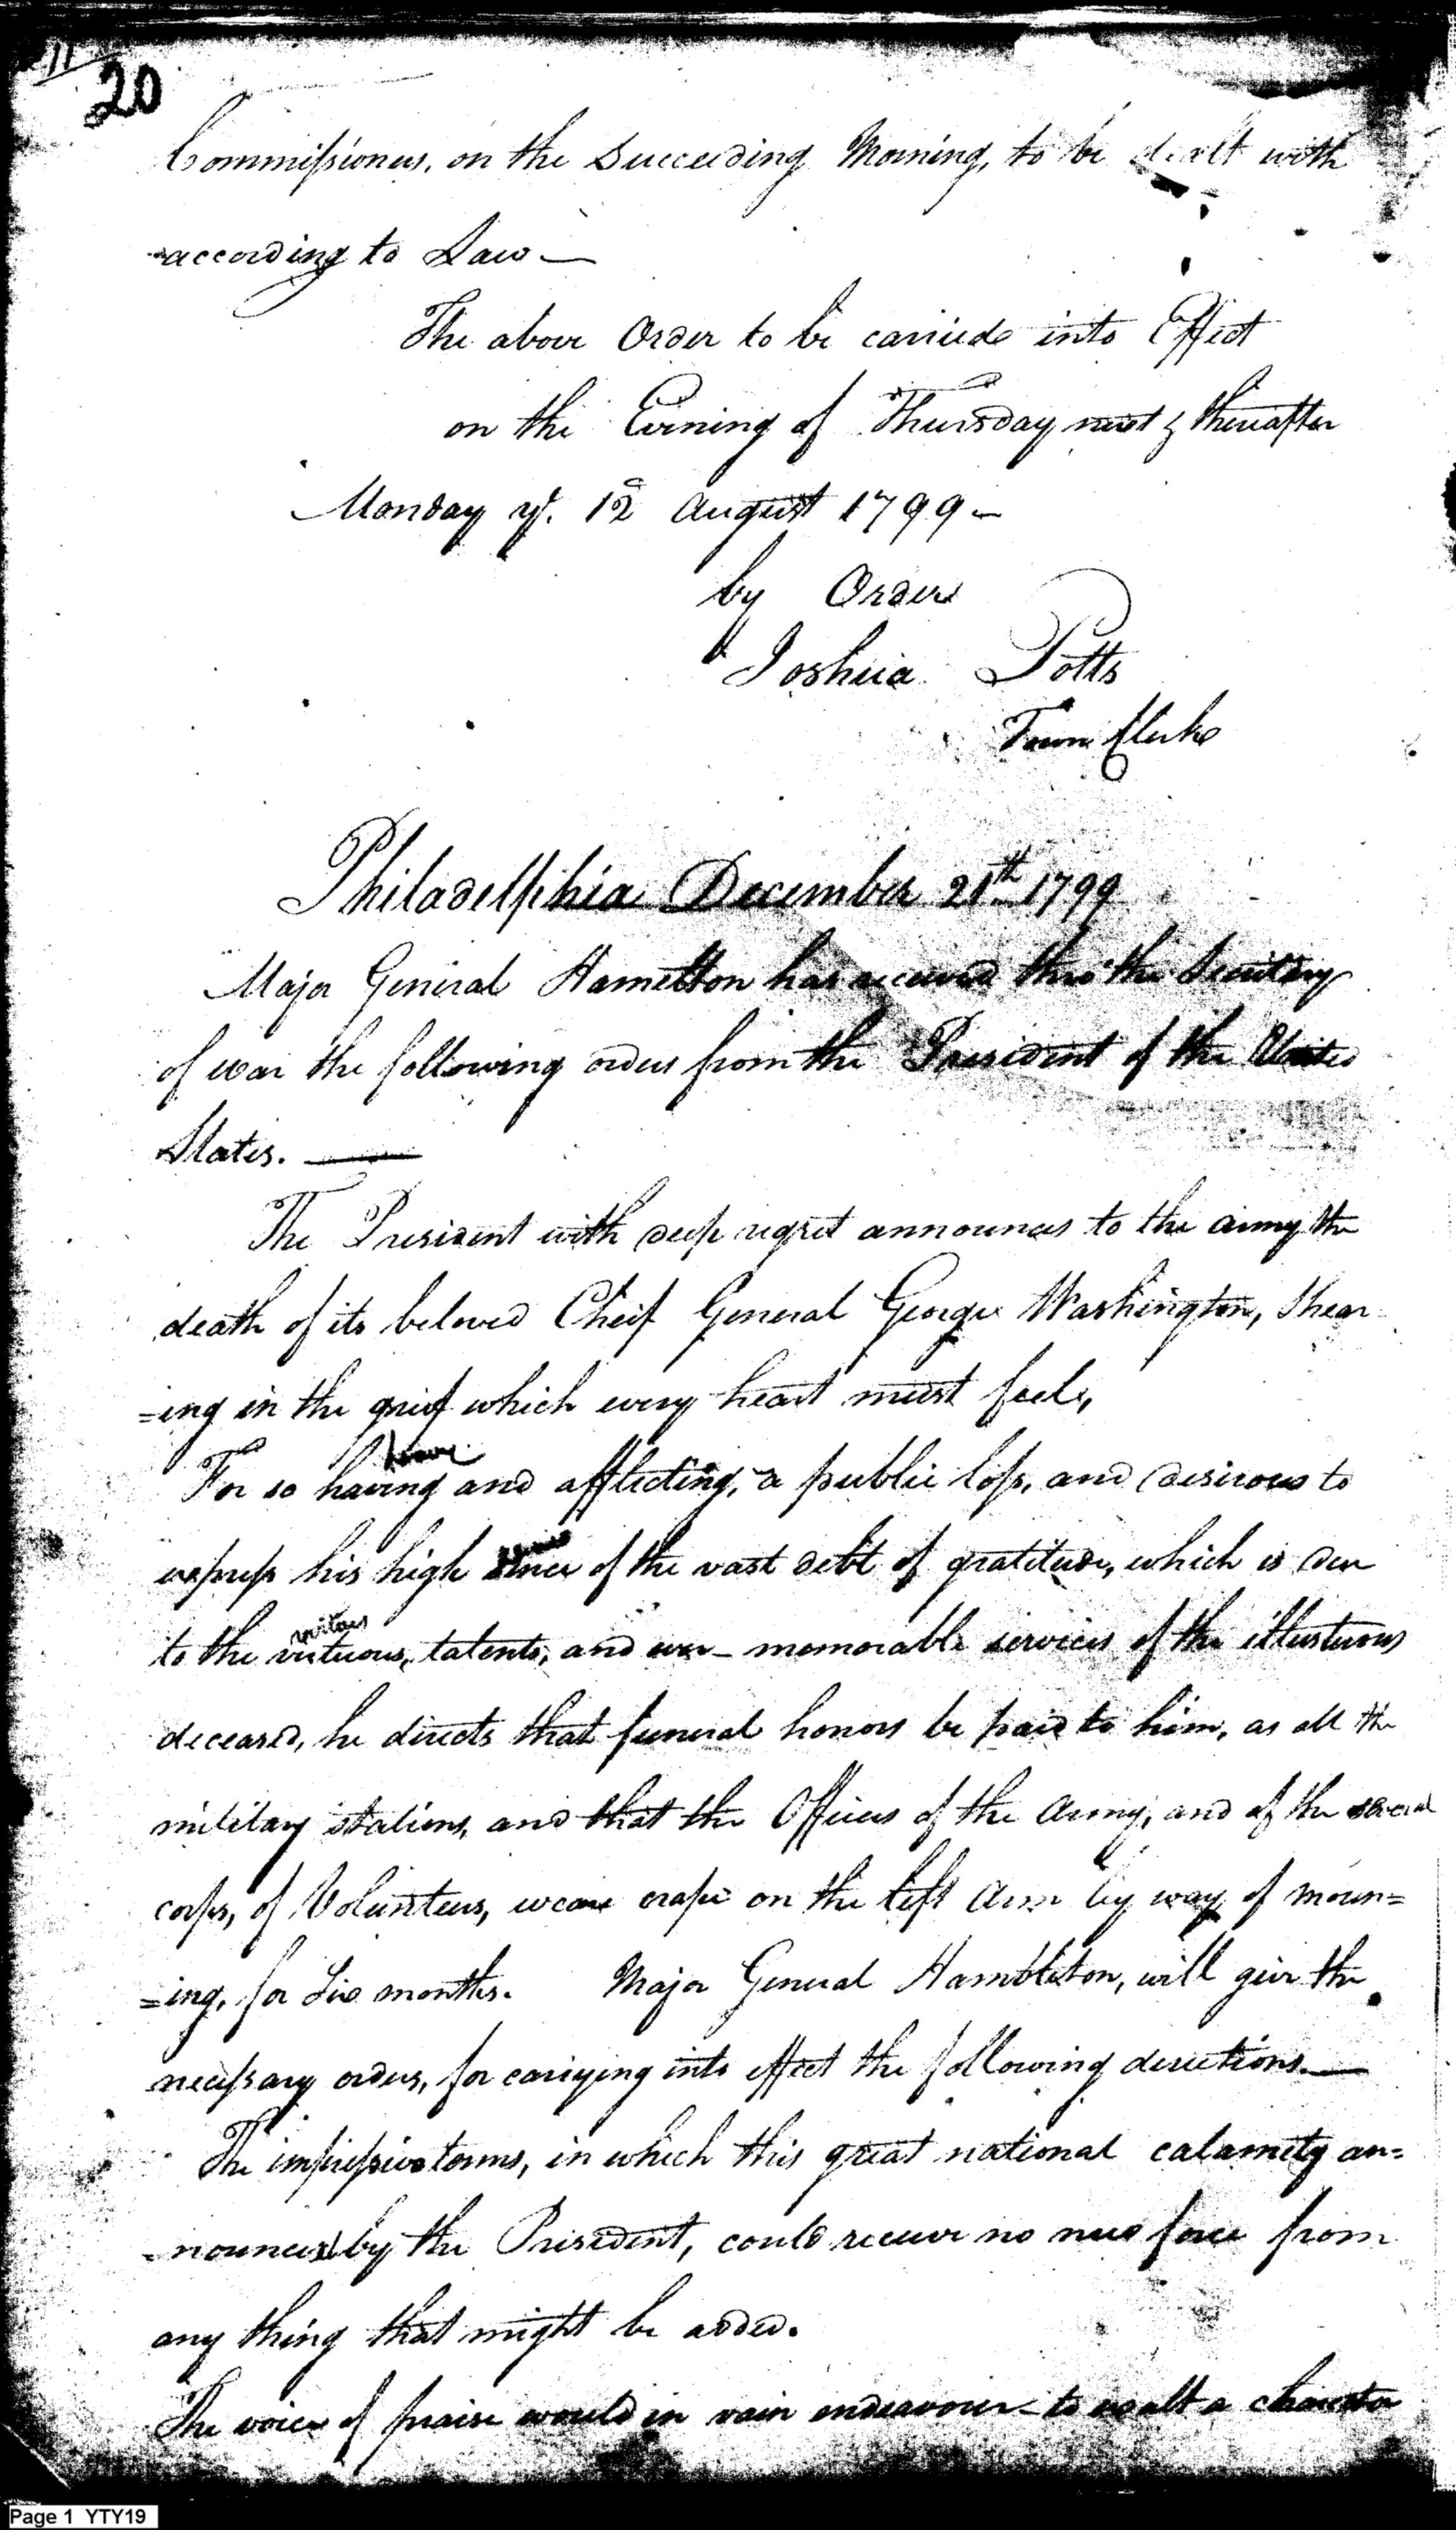 11
20
Commissioners, on the Succeeding Morning, to be dealt with
according to Law —
The above Order to be carriede into Effect
on the Evening of Thursday next & thereafter
Monday ye. 12 August 1799 —
by Order
Joshua Potts
Town Clerke
Philadelphia December 21th 1799
Major General Hamelton has received thro' the Secretary
of war the following orders from the President of the United
States. —
The President with deep regret announces to the army the
death of its beloved Cheif General George Washington, Shear-
=ing in the grief which every heart must feele,
heavy
For so having and afflicting, a public loss, and desirous to
express his high of the vast debt of gratitude, which is due
virtues
to the virtuous, talents, and ever- memorable services of the illusterous
deceased, he directs that funeral honors be paid to him, as all the
military stations, and that the Officers of the Army, and of the several
corps, of Volunteers, weare crape on the left Arm by way of mourn=
=ing, for Six months. Major General Hambleton, will give the
necessary orders, for carrying into effect the following derections. —
The impressive terms, in which this great national calamity an=
-nounced by the President, could receive no new force from
any thing that might be added.
The voice of praise would in vain endeavour to exalt a character
Page 1 YTY19